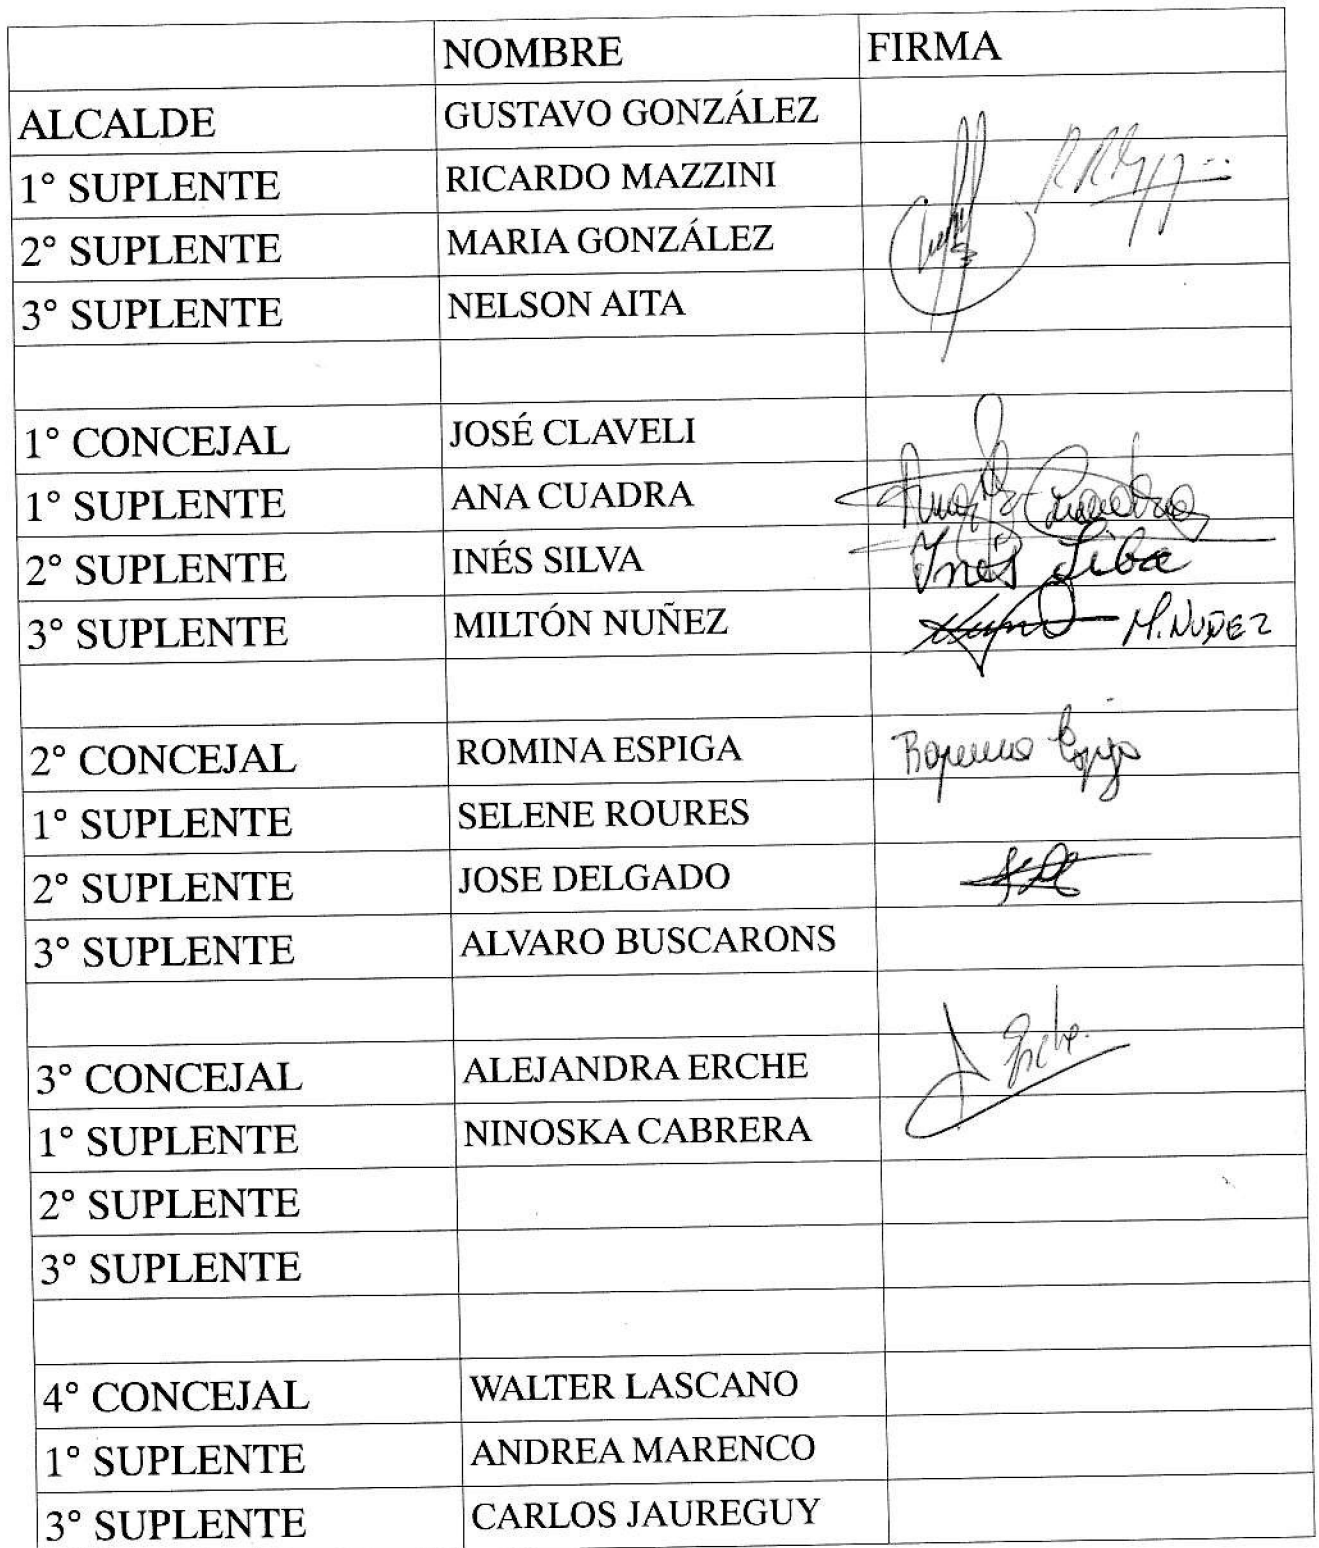 NOMBRE FIRMA
ALCALDE GUSTAVO GONZÁLEZ
1° SUPLENTE RICARDO MAZZINI
2° SUPLENTE MARIA GONZÁLEZ
3° SUPLENTE NELSON AITA
1° CONCEJAL JOSÉ CLAVELI
1° SUPLENTE ANA CUADRA Ana Cuadra
2° SUPLENTE INÉS SILVA Inés
3° SUPLENTE MILTÓN NUÑEZ M. NUÑEZ
2° CONCEJAL ROMINA ESPIGA Romina Espiga
1° SUPLENTE SELENE ROURES
2° SUPLENTE JOSE DELGADO
3° SUPLENTE ALVARO BUSCARONS
3° CONCEJAL ALEJANDRA ERCHE Erche.
1° SUPLENTE NINOSKA CABRERA
2° SUPLENTE
3° SUPLENTE
4° CONCEJAL WALTER LASCANO
1° SUPLENTE ANDREA MARENCO
3° SUPLENTE CARLOS JAUREGUY